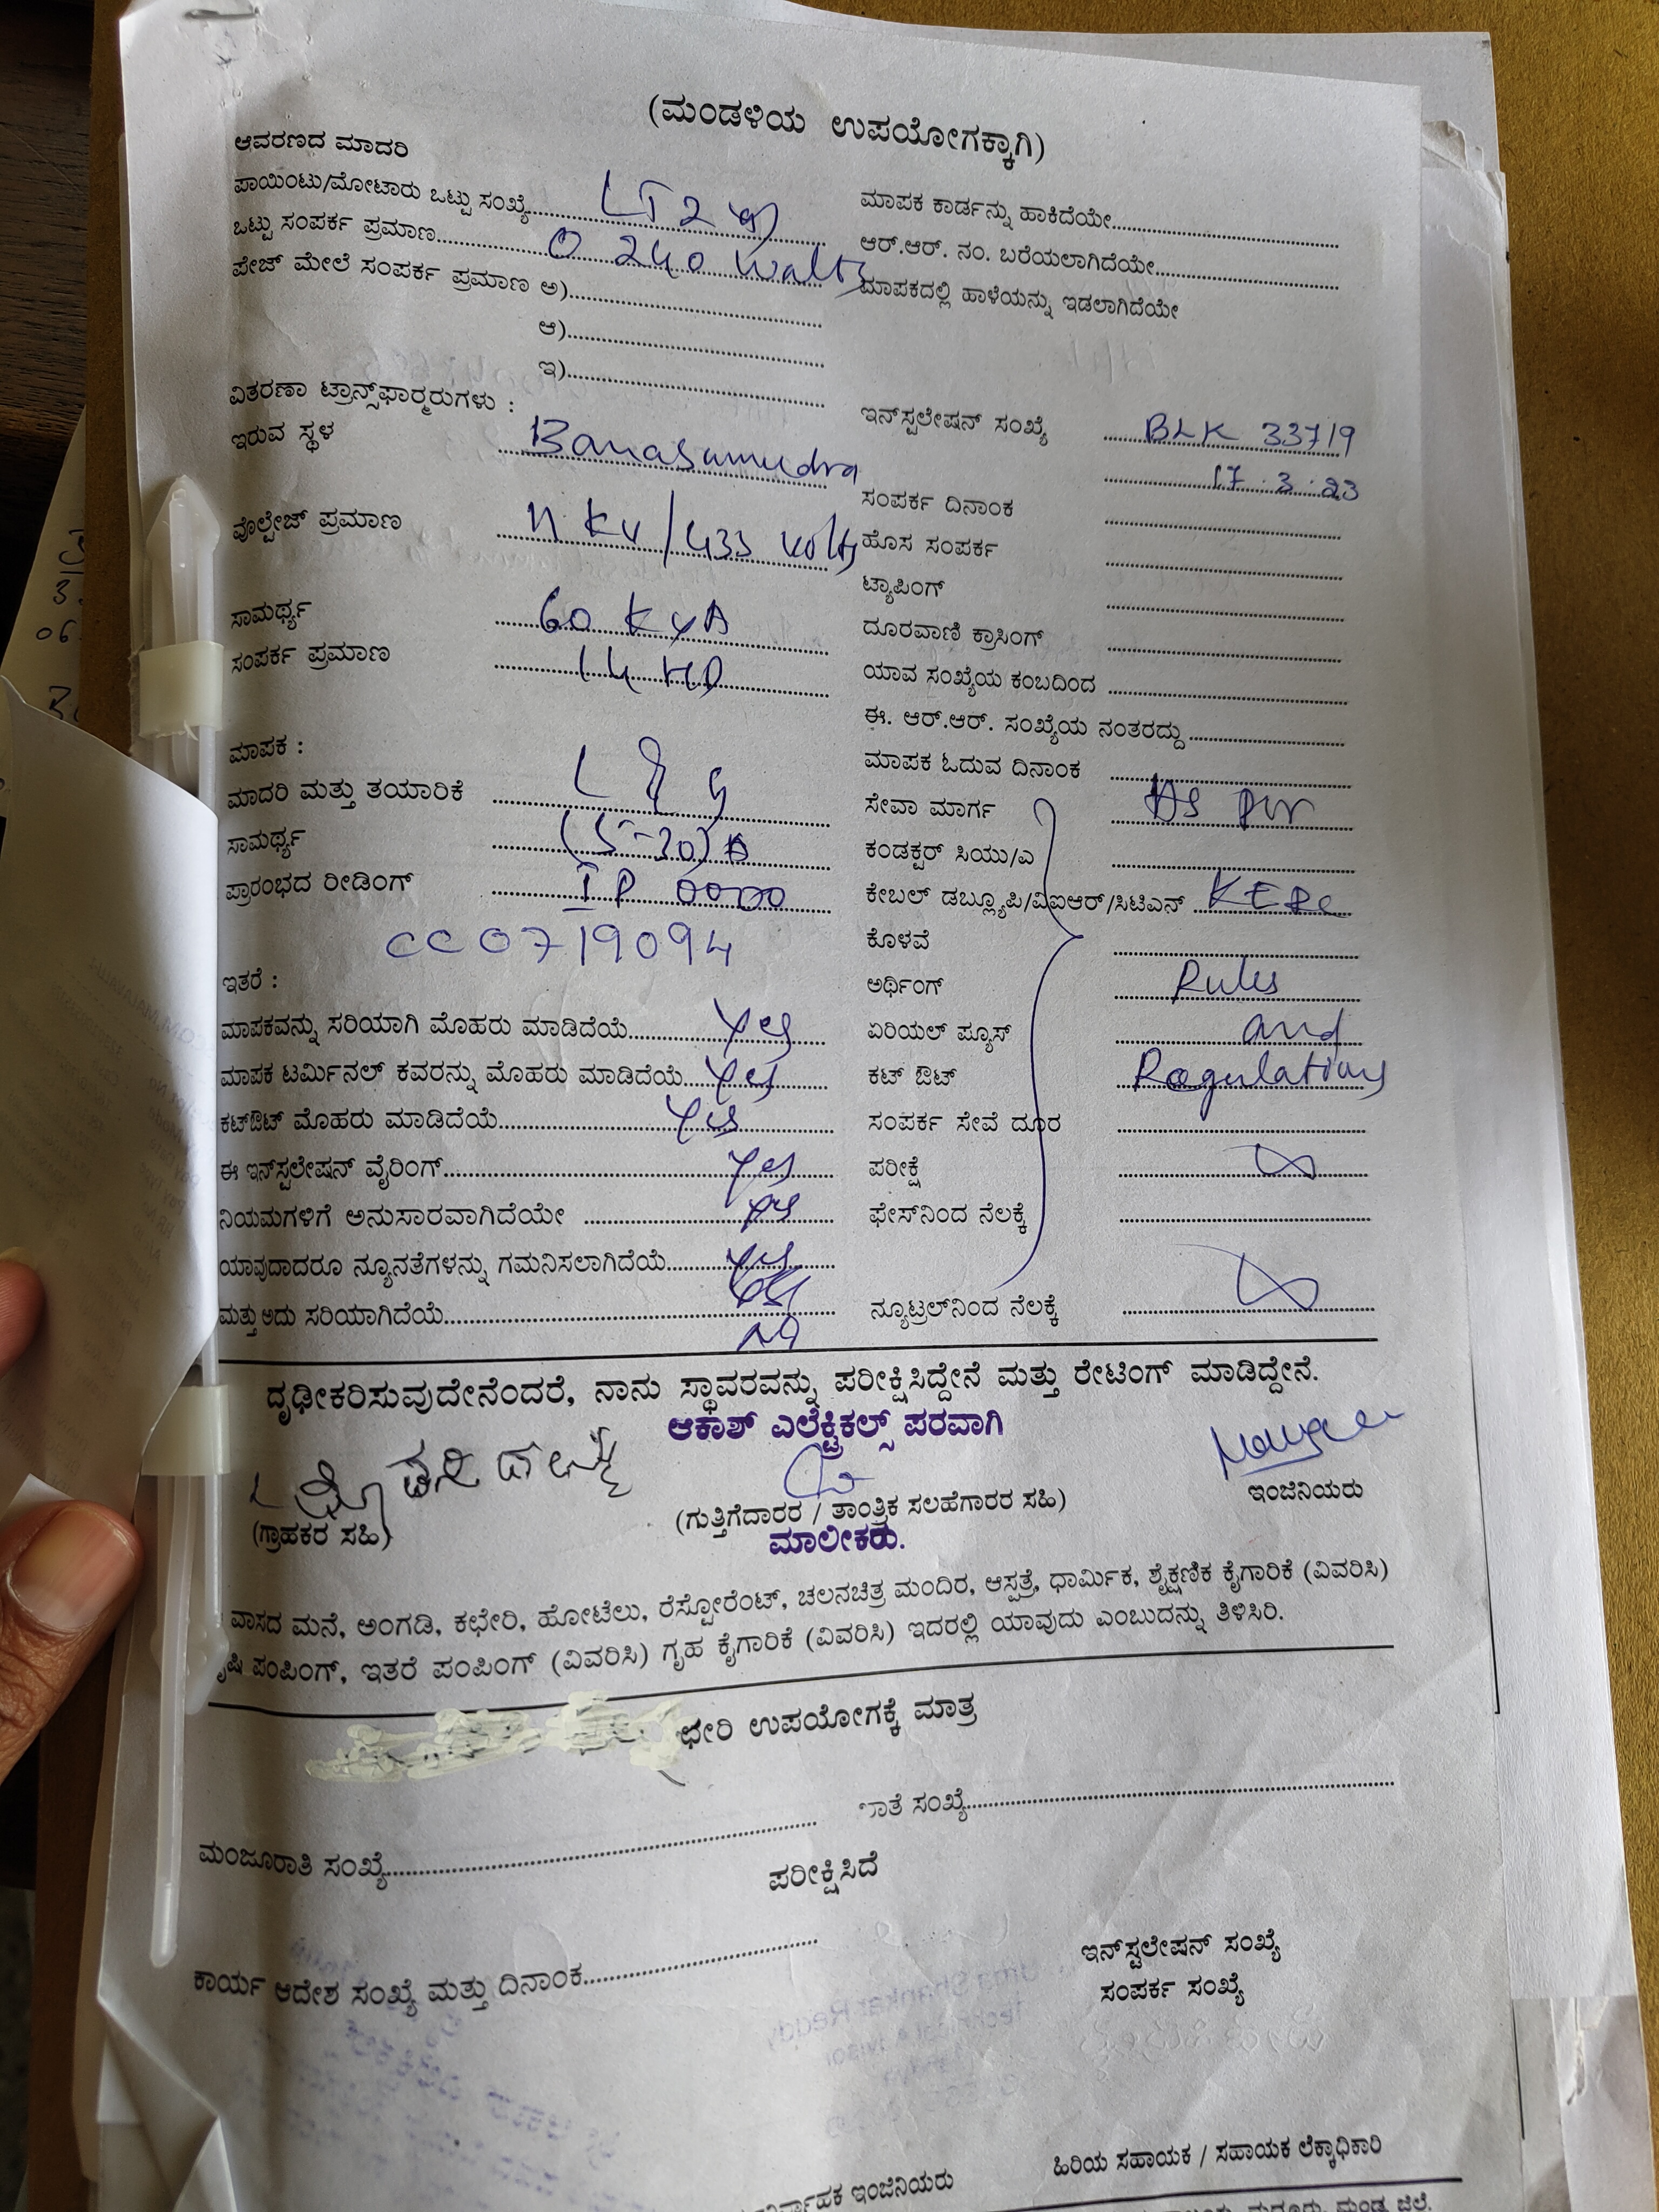 (ಮಂಡಳಿಯ ಉಪಯೋಗಕ್ಕಾಗಿ)
ಆವರಣದ ಮಾದರಿ
ಪಾಯಿಂಟು/ಮೋಟಾರು ಒಟ್ಟು ಸಂಖ್ಯೆ.......... LT2
ಒಟ್ಟು ಸಂಪರ್ಕ ಪ್ರಮಾಣ.......... 0 240 Watts
ಪೇಜ್ ಮೇಲೆ ಸಂಪರ್ಕ ಪ್ರಮಾಣ ಅ)..........
ಆ)..........
ಇ)..........
ವಿತರಣಾ ಟ್ರಾನ್ಸ್‌ಫಾರ್ಮರುಗಳು :
ಇರುವ ಸ್ಥಳ Banasamudra
ವೋಲ್ಟೇಜ್ ಪ್ರಮಾಣ 11 KV/433 volts
ಸಾಮರ್ಥ್ಯ 60 KVA
ಸಂಪರ್ಕ ಪ್ರಮಾಣ 14 HP
ಮಾಪಕ :
ಮಾದರಿ ಮತ್ತು ತಯಾರಿಕೆ L & G
ಸಾಮರ್ಥ್ಯ (5-30) A
ಪ್ರಾರಂಭದ ರೀಡಿಂಗ್ IR 0000
CC0719094
ಇತರೆ :
ಮಾಪಕವನ್ನು ಸರಿಯಾಗಿ ಮೊಹರು ಮಾಡಿದೆಯೆ.......... Yes
ಮಾಪಕ ಟರ್ಮಿನಲ್ ಕವರನ್ನು ಮೊಹರು ಮಾಡಿದೆಯೆ.......... Yes
ಕಟ್‌ಔಟ್ ಮೊಹರು ಮಾಡಿದೆಯೆ.......... Yes
ಈ ಇನ್‌ಸ್ಟಲೇಷನ್ ವೈರಿಂಗ್.......... Yes
ನಿಯಮಗಳಿಗೆ ಅನುಸಾರವಾಗಿದೆಯೇ .......... Yes
ಯಾವುದಾದರೂ ನ್ಯೂನತೆಗಳನ್ನು ಗಮನಿಸಲಾಗಿದೆಯೆ.......... Yes
ಮತ್ತು ಅದು ಸರಿಯಾಗಿದೆಯೆ..........
ಮಾಪಕ ಕಾರ್ಡನ್ನು ಹಾಕಿದೆಯೇ..........
ಆರ್.ಆರ್. ನಂ. ಬರೆಯಲಾಗಿದೆಯೇ..........
ಮಾಪಕದಲ್ಲಿ ಹಾಳೆಯನ್ನು ಇಡಲಾಗಿದೆಯೇ
ಇನ್‌ಸ್ಟಲೇಷನ್ ಸಂಖ್ಯೆ BLK 33719
17.3.23
ಸಂಪರ್ಕ ದಿನಾಂಕ
ಹೊಸ ಸಂಪರ್ಕ
ಟ್ಯಾಪಿಂಗ್
ದೂರವಾಣಿ ಕ್ರಾಸಿಂಗ್
ಯಾವ ಸಂಖ್ಯೆಯ ಕಂಬದಿಂದ
ಈ. ಆರ್.ಆರ್. ಸಂಖ್ಯೆಯ ನಂತರದ್ದು
ಮಾಪಕ ಓದುವ ದಿನಾಂಕ
ಸೇವಾ ಮಾರ್ಗ As per
ಕಂಡಕ್ಟರ್ ಸಿಯು/ಎ
ಕೇಬಲ್ ಡಬ್ಲ್ಯೂಪಿ/ವಿಐಆರ್/ಸಿಟಿಎನ್ KERC
ಕೊಳವೆ
ಅರ್ಥಿಂಗ್ Rules
ಏರಿಯಲ್ ಪ್ಯೂಸ್ and
ಕಟ್ ಔಟ್ Regulations
ಸಂಪರ್ಕ ಸೇವೆ ದೂರ
ಪರೀಕ್ಷೆ
ಫೇಸ್‌ನಿಂದ ನೆಲಕ್ಕೆ
ನ್ಯೂಟ್ರಲ್‌ನಿಂದ ನೆಲಕ್ಕೆ
ದೃಢೀಕರಿಸುವುದೇನೆಂದರೆ, ನಾನು ಸ್ಥಾವರವನ್ನು ಪರೀಕ್ಷಿಸಿದ್ದೇನೆ ಮತ್ತು ರೇಟಿಂಗ್ ಮಾಡಿದ್ದೇನೆ.
ಆಕಾಶ್ ಎಲೆಕ್ಟ್ರಿಕಲ್ಸ್ ಪರವಾಗಿ
(ಗ್ರಾಹಕರ ಸಹಿ) (ಗುತ್ತಿಗೆದಾರರ / ತಾಂತ್ರಿಕ ಸಲಹೆಗಾರರ ಸಹಿ) ಇಂಜಿನಿಯರು
ಮಾಲೀಕರು.
ವಾಸದ ಮನೆ, ಅಂಗಡಿ, ಕಛೇರಿ, ಹೋಟೆಲು, ರೆಸ್ಟೋರೆಂಟ್, ಚಲನಚಿತ್ರ ಮಂದಿರ, ಆಸ್ಪತ್ರೆ, ಧಾರ್ಮಿಕ, ಶೈಕ್ಷಣಿಕ ಕೈಗಾರಿಕೆ (ವಿವರಿಸಿ)
ಪಂಪಿಂಗ್, ಇತರೆ ಪಂಪಿಂಗ್ (ವಿವರಿಸಿ) ಗೃಹ ಕೈಗಾರಿಕೆ (ವಿವರಿಸಿ) ಇದರಲ್ಲಿ ಯಾವುದು ಎಂಬುದನ್ನು ತಿಳಿಸಿರಿ.
ಛೇರಿ ಉಪಯೋಗಕ್ಕೆ ಮಾತ್ರ
ಮಂಜೂರಾತಿ ಸಂಖ್ಯೆ.......... ಾತೆ ಸಂಖ್ಯೆ..........
ಪರೀಕ್ಷಿಸಿದೆ
ಕಾರ್ಯ ಆದೇಶ ಸಂಖ್ಯೆ ಮತ್ತು ದಿನಾಂಕ..........
ಇನ್‌ಸ್ಟಲೇಷನ್ ಸಂಖ್ಯೆ
ಸಂಪರ್ಕ ಸಂಖ್ಯೆ
ಇಂಜಿನಿಯರು ಹಿರಿಯ ಸಹಾಯಕ / ಸಹಾಯಕ ಲೆಕ್ಕಾಧಿಕಾರಿ